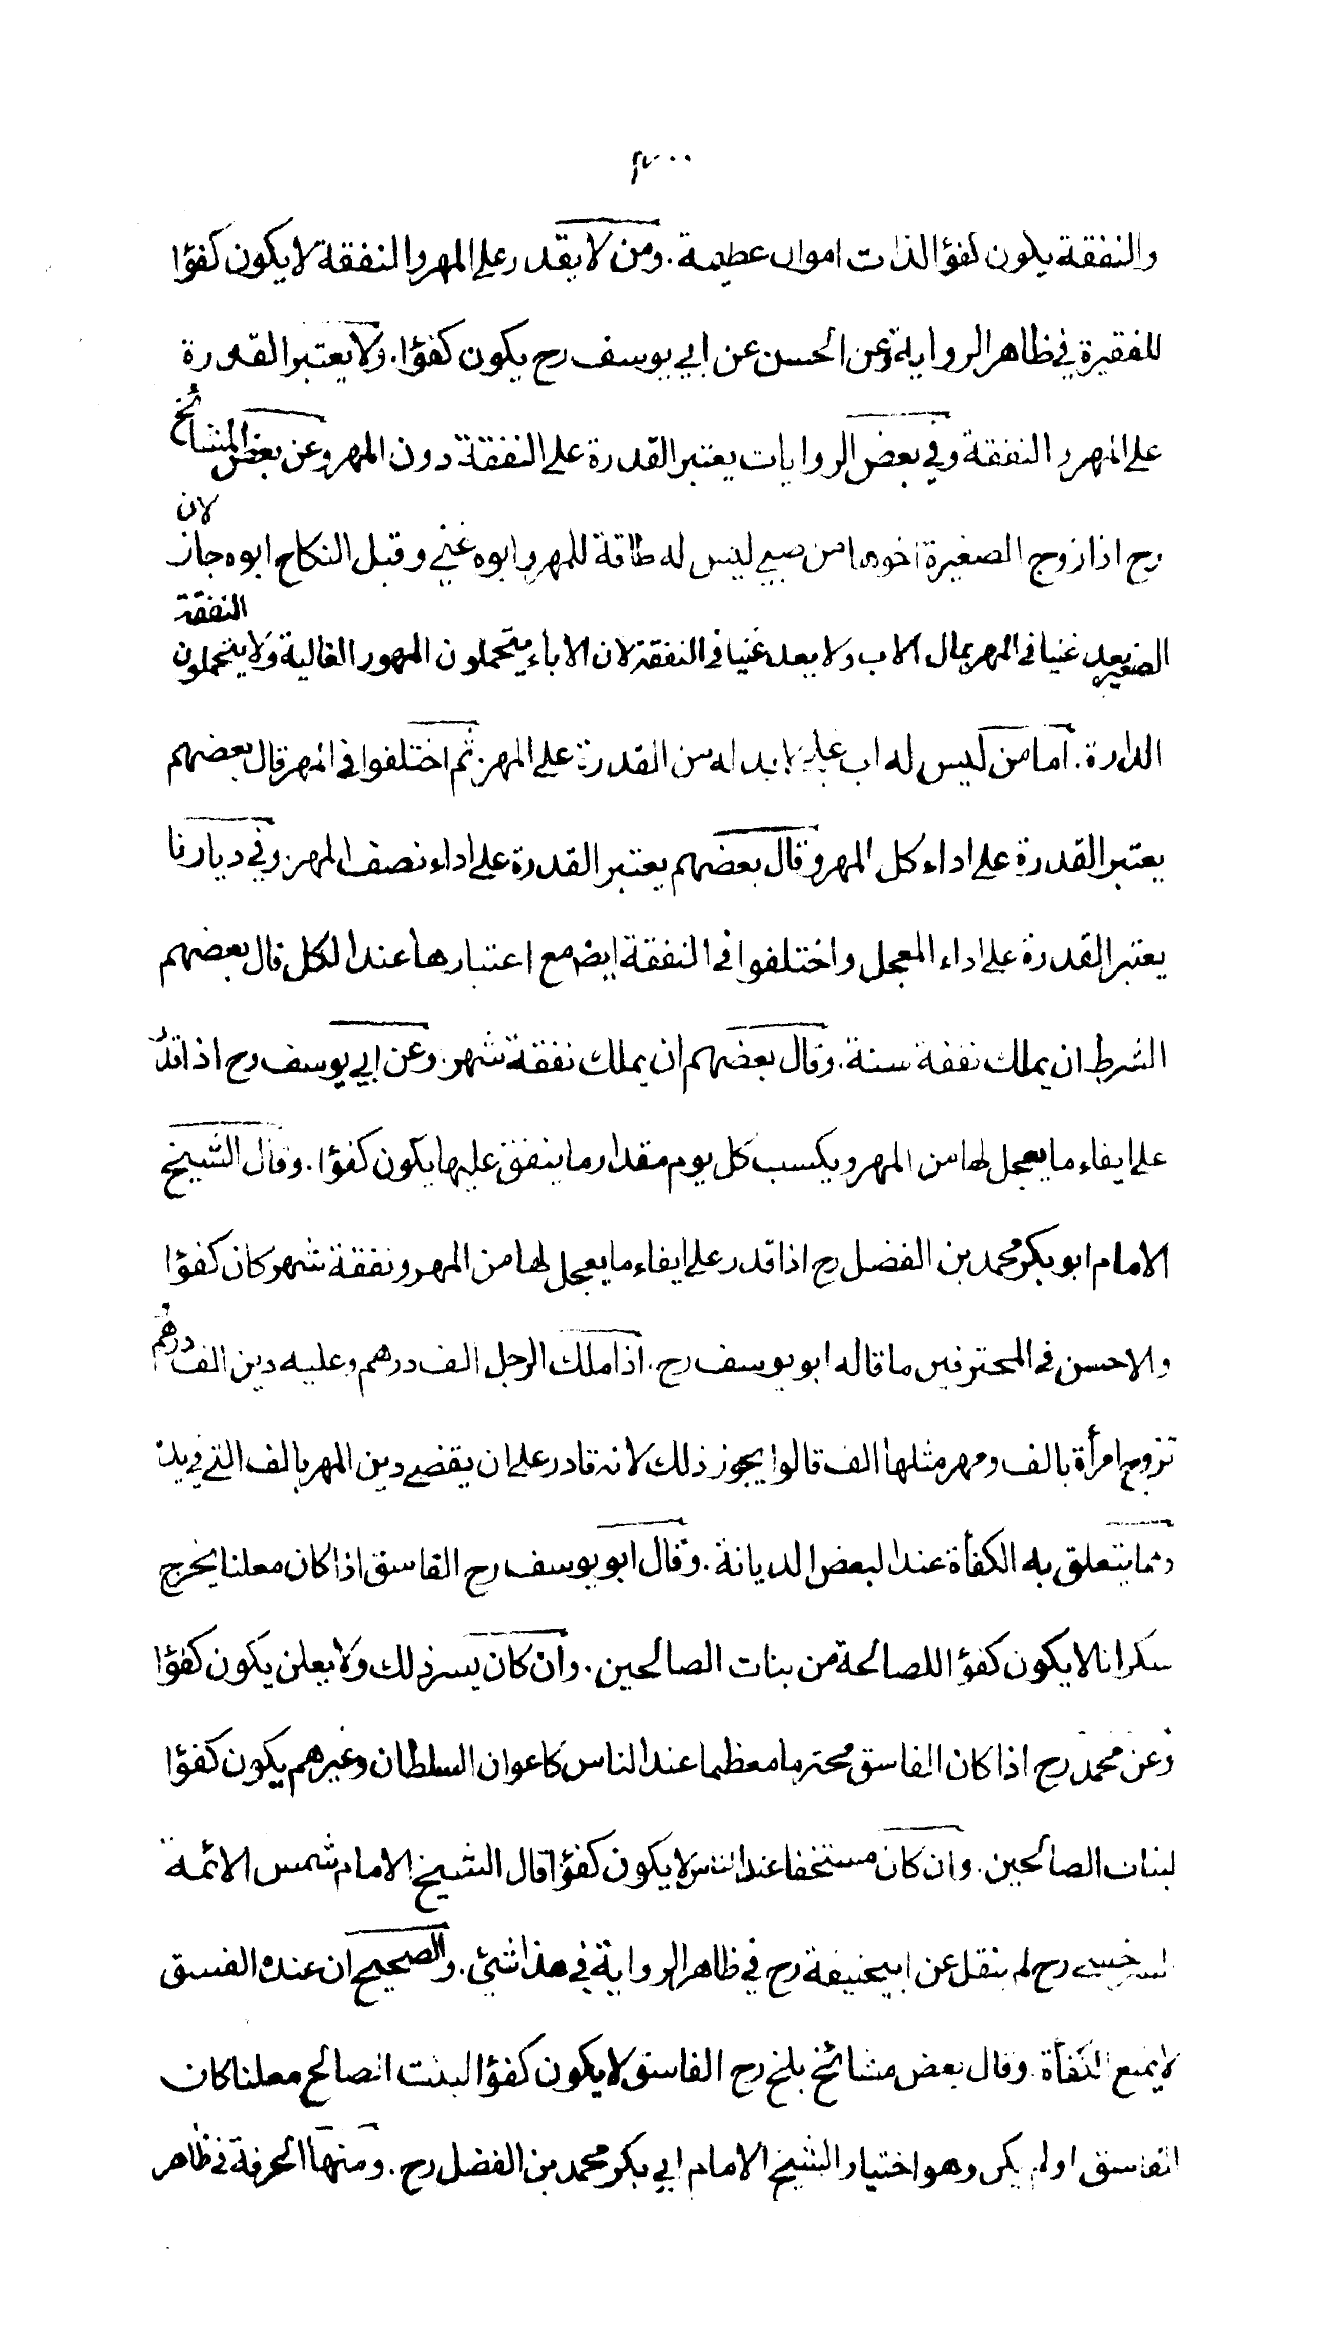 ٤٠٠
والنفقة يكون كفؤا لذات اموال عظيمة . ومن لا يقدر على المهر والنفقة لا يكون كفؤا
للفقيرة في ظاهر الرواية وعن الحسن عن ابي يوسف رح يكون كفؤا . ولا يعتبر القدرة
على المهر والنفقة وفي بعض الروايات يعتبر القدرة على النفقة دون المهر وعن بعض المشائخ
رح اذا زوج الصغيرة اخوها من صبي ليس له طاقة للمهر وابوه غني وقبل النكاح ابوه جاز لان
الصغير يعد غنيا في المهر بمال الاب ولا يعد غنيا في النفقة لان الاباء يتحملون المهور الغالية ولا يتحملون النفقة
الدارة . اما من ليس له اب عليه لا بد له من القدرة على المهر . ثم اختلفوا في المهر قال بعضهم
يعتبر القدرة على اداء كل المهر وقال بعضهم يعتبر القدرة على اداء نصف المهر . وفي ديارنا
يعتبر القدرة على اداء المعجل واختلفوا في النفقة ايضا مع اعتبارها عند الكل قال بعضهم
الشرط ان يملك نفقة سنة . وقال بعضهم ان يملك نفقة شهر . وعن ابي يوسف رح اذا قدر
على ايفاء ما يعجل لها من المهر ويكسب كل يوم مقدار ما ينفق عليها يكون كفؤا . وقال الشيخ
الامام ابو بكر محمد بن الفضل رح اذا قدر على ايفاء ما يعجل لها من المهر ونفقة شهر كان كفؤا
والاحسن في المحترفين ما قاله ابو يوسف رح . اذا ملك الرجل الف درهم وعليه دين الف درهم
تزوج امرأة بالف ومهر مثلها الف قالوا يجوز ذلك لانه قادر على ان يقضي دين المهر بالف التي في يده
ومما يتعلق به الكفأة عند البعض الديانة . وقال ابو يوسف رح الفاسق اذا كان معلنا يخرج
سكرانا لا يكون كفؤا للصالحة من بنات الصالحين . وان كان يسر ذلك ولا يعلن يكون كفؤا
وعن محمد رح اذا كان الفاسق محترما معظما عند الناس كاعوان السلطان وغيرهم يكون كفؤا
لبنات الصالحين . وان كان مستخفا عند الناس لا يكون كفؤا قال الشيخ الامام شمس الائمة
السرخسي رح لم ينقل عن ابيحنيفة رح في ظاهر الرواية في هذا شئ . والصحيح ان عنده الفسق
لا يمنع الكفأة . وقال بعض مشائخ بلخ رح الفاسق لا يكون كفؤا لبنت الصالح معلنا كان
الفاسق او لم يكن وهو اختيار الشيخ الامام ابي بكر محمد بن الفضل رح . ومنها الحرفة في ظاهر